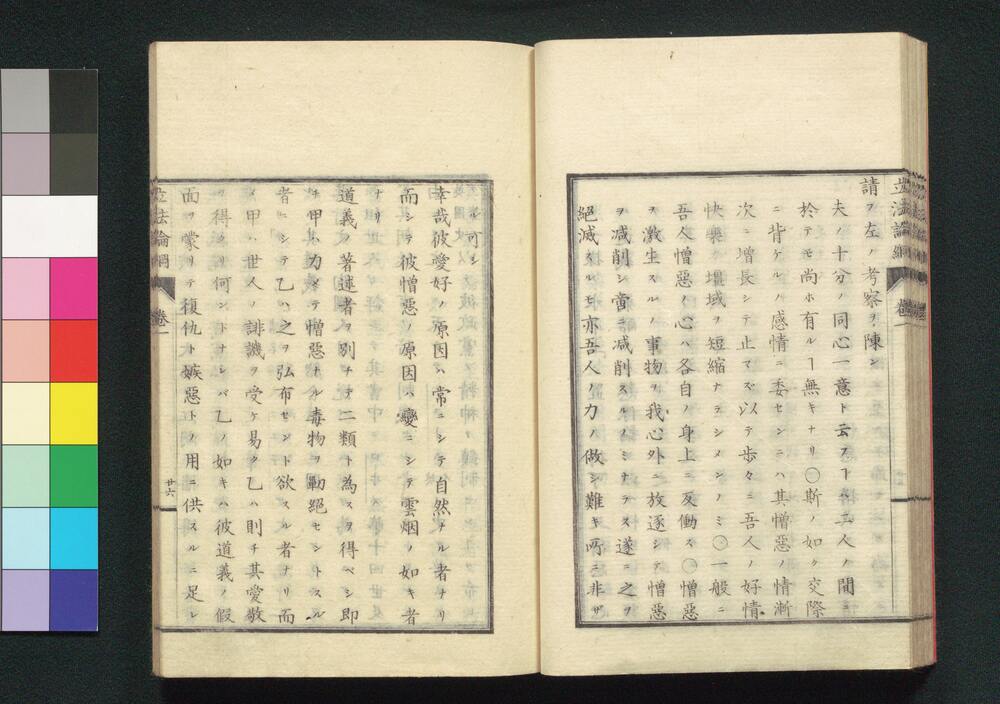 立法論綱 卷一
請フ左ノ考察ヲ陳ン
夫ノ十分ノ同心一意ト云フヿハ二人ノ間ニ
於テモ尚ホ有ルヿ無キナリ〇斯ノ如ク交際
ニ背ケルノ感情ニ委センニハ其憎惡ノ情漸
次ニ增長シテ止マズ以テ歩々ニ吾人ノ好情
快樂ノ壃域ヲ短縮ナラシメンノミ〇一般ニ
吾人憎惡ノ心ハ各自ノ身上ニ反働ス〇憎惡
ヲ激生スルノ事物ヲ我心外ニ放逐シテ憎惡
ヲ减削シ啻ニ减削スルノミナラス遂ニ之ヲ
絕滅スルヿモ亦吾人ノ力ノ做シ難キ所ニ非ザ
ル可シ
幸哉彼愛好ノ原因ハ常ニシテ自然ナル者ナリ
而シテ彼憎惡ノ原因ハ變ニシテ雲烟ノ如キ者
ナリ
道義ノ著述者ヲ別チテ二類ト為スヲ得ベシ即
チ甲ハ力メテ憎惡ナル毒物ヲ勦絕セントスル
者ニシテ乙ハ之ヲ弘布セント欲スル者ナリ而
メ甲ハ世人ノ誹譏ヲ受ケ易ク乙ハ則チ其愛敬
ヲ得タリ何ントナレバ乙ノ如キハ彼道義ノ假
面ヲ蒙リテ復仇ト嫉惡トノ用ニ供スルニ足レ
立法論綱 卷一
廿六